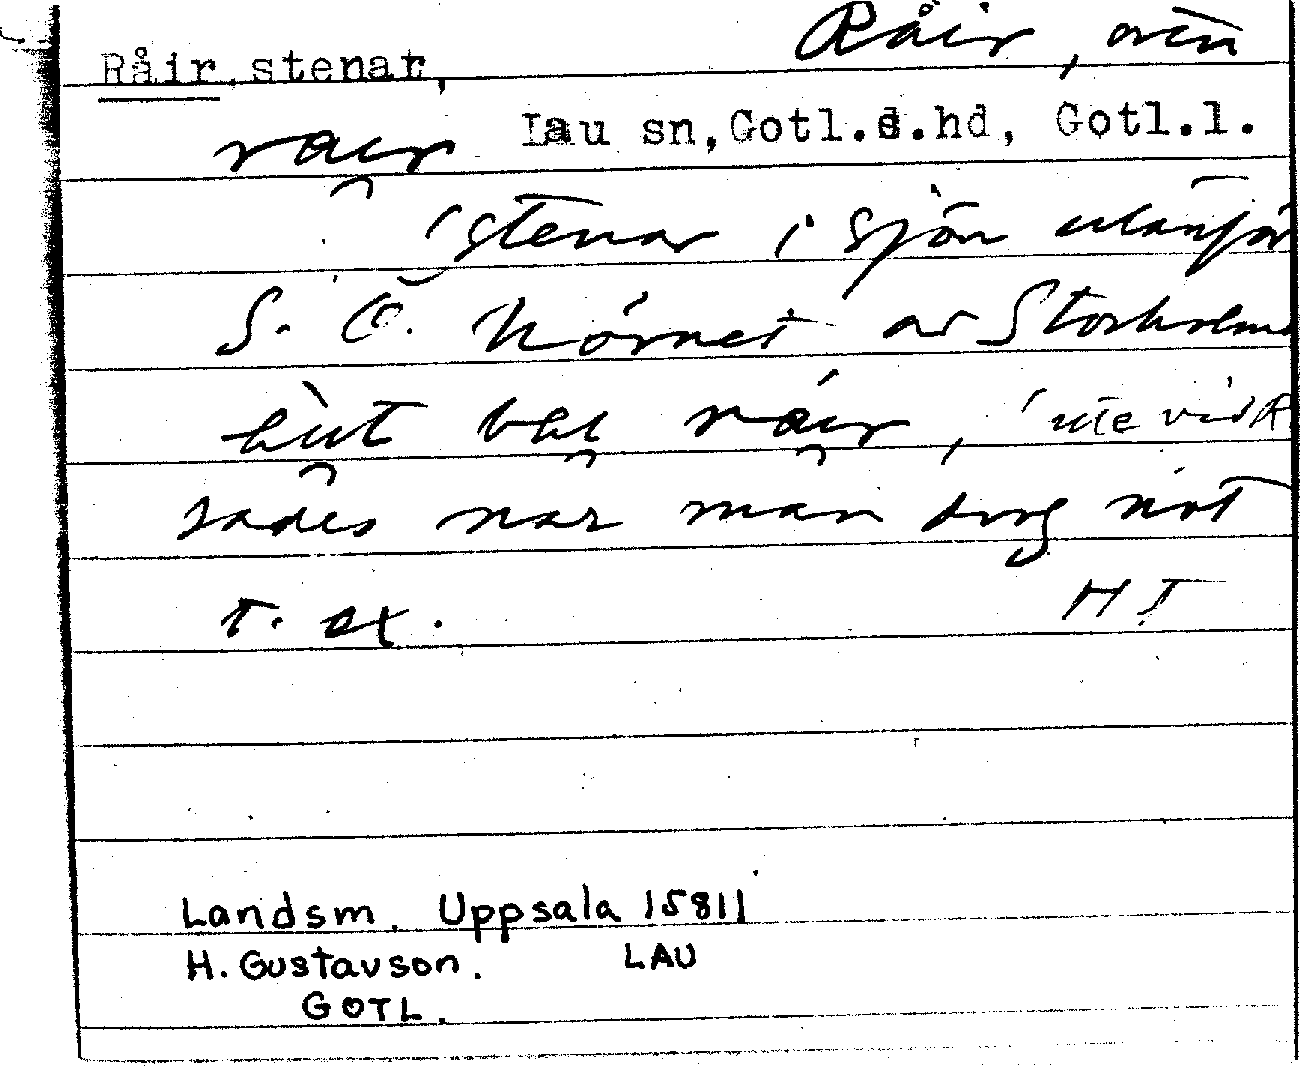 Råir, stenar,
Råir, även
Lau sn, Gotl.s.hd, Gotl.l.
råir
stenar i sjön utanför
S. Ö. hörnet av Storholmen
ut råir, ute vid R
sades när man drog not
t. ex. HJ
Landsm. Uppsala 15811
H. Gustavson. LAU
GOTL.